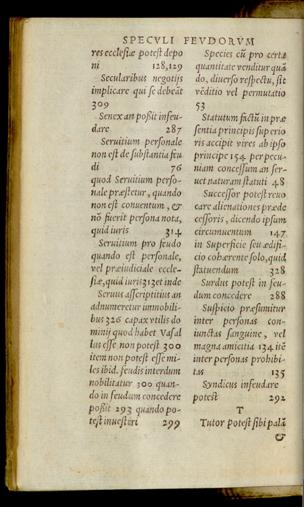 SPECVLI FEVDORVM
res ecclesiæ potest depo
ni 128,129
Secularibus negotijs
implicare qui se debeãt
309
Senex an poßit infeu-
dare 287
Seruitium personale
non est de substantia feu
di 76
quod Seruitium perso-
nale præstetur, quando
non est conuentum, &
nõ fuerit persona nota,
quid iuris 314
Seruitium pro feudo
quando est personale,
vel præiudiciale eccle-
siæ, quid iuris 313 et inde
Seruus asscriptitius an
adnumeretur immobili-
bus 326 capax vtilis do
minij quod habet Vasal
lus esse non potest 300
item non potest esse mi-
les ibid. feudis interdum
nobilitatur 300 quan-
do in feudum concedere
poßit 293 quando po-
test inuestiri 299
Species cũ pro certa
quantitate venditur quã
do, diuerso respectu, sit
vẽditio vel permutatio
53
Statutum factũ in præ
sentia principis superio
ris accipit vires ab ipso
principe 154 per pecu-
niam concessum an ser-
uet naturam statuti 48
Successor potest reuo
care alienationes præde
cessoris, dicendo ipsum
circumuentum 147
in Superficie seu ædifi-
cio cohærente solo, quid
statuendum 328
Surdus potest in feu-
dum concedere 288
Suspicio præsumitur
inter personas con-
iunctas sanguine, vel
magna amicitia 134 itẽ
inter personas prohibi-
tas 135
Syndicus infeudare
potest 292
T
Tutor potest sibi palã
&